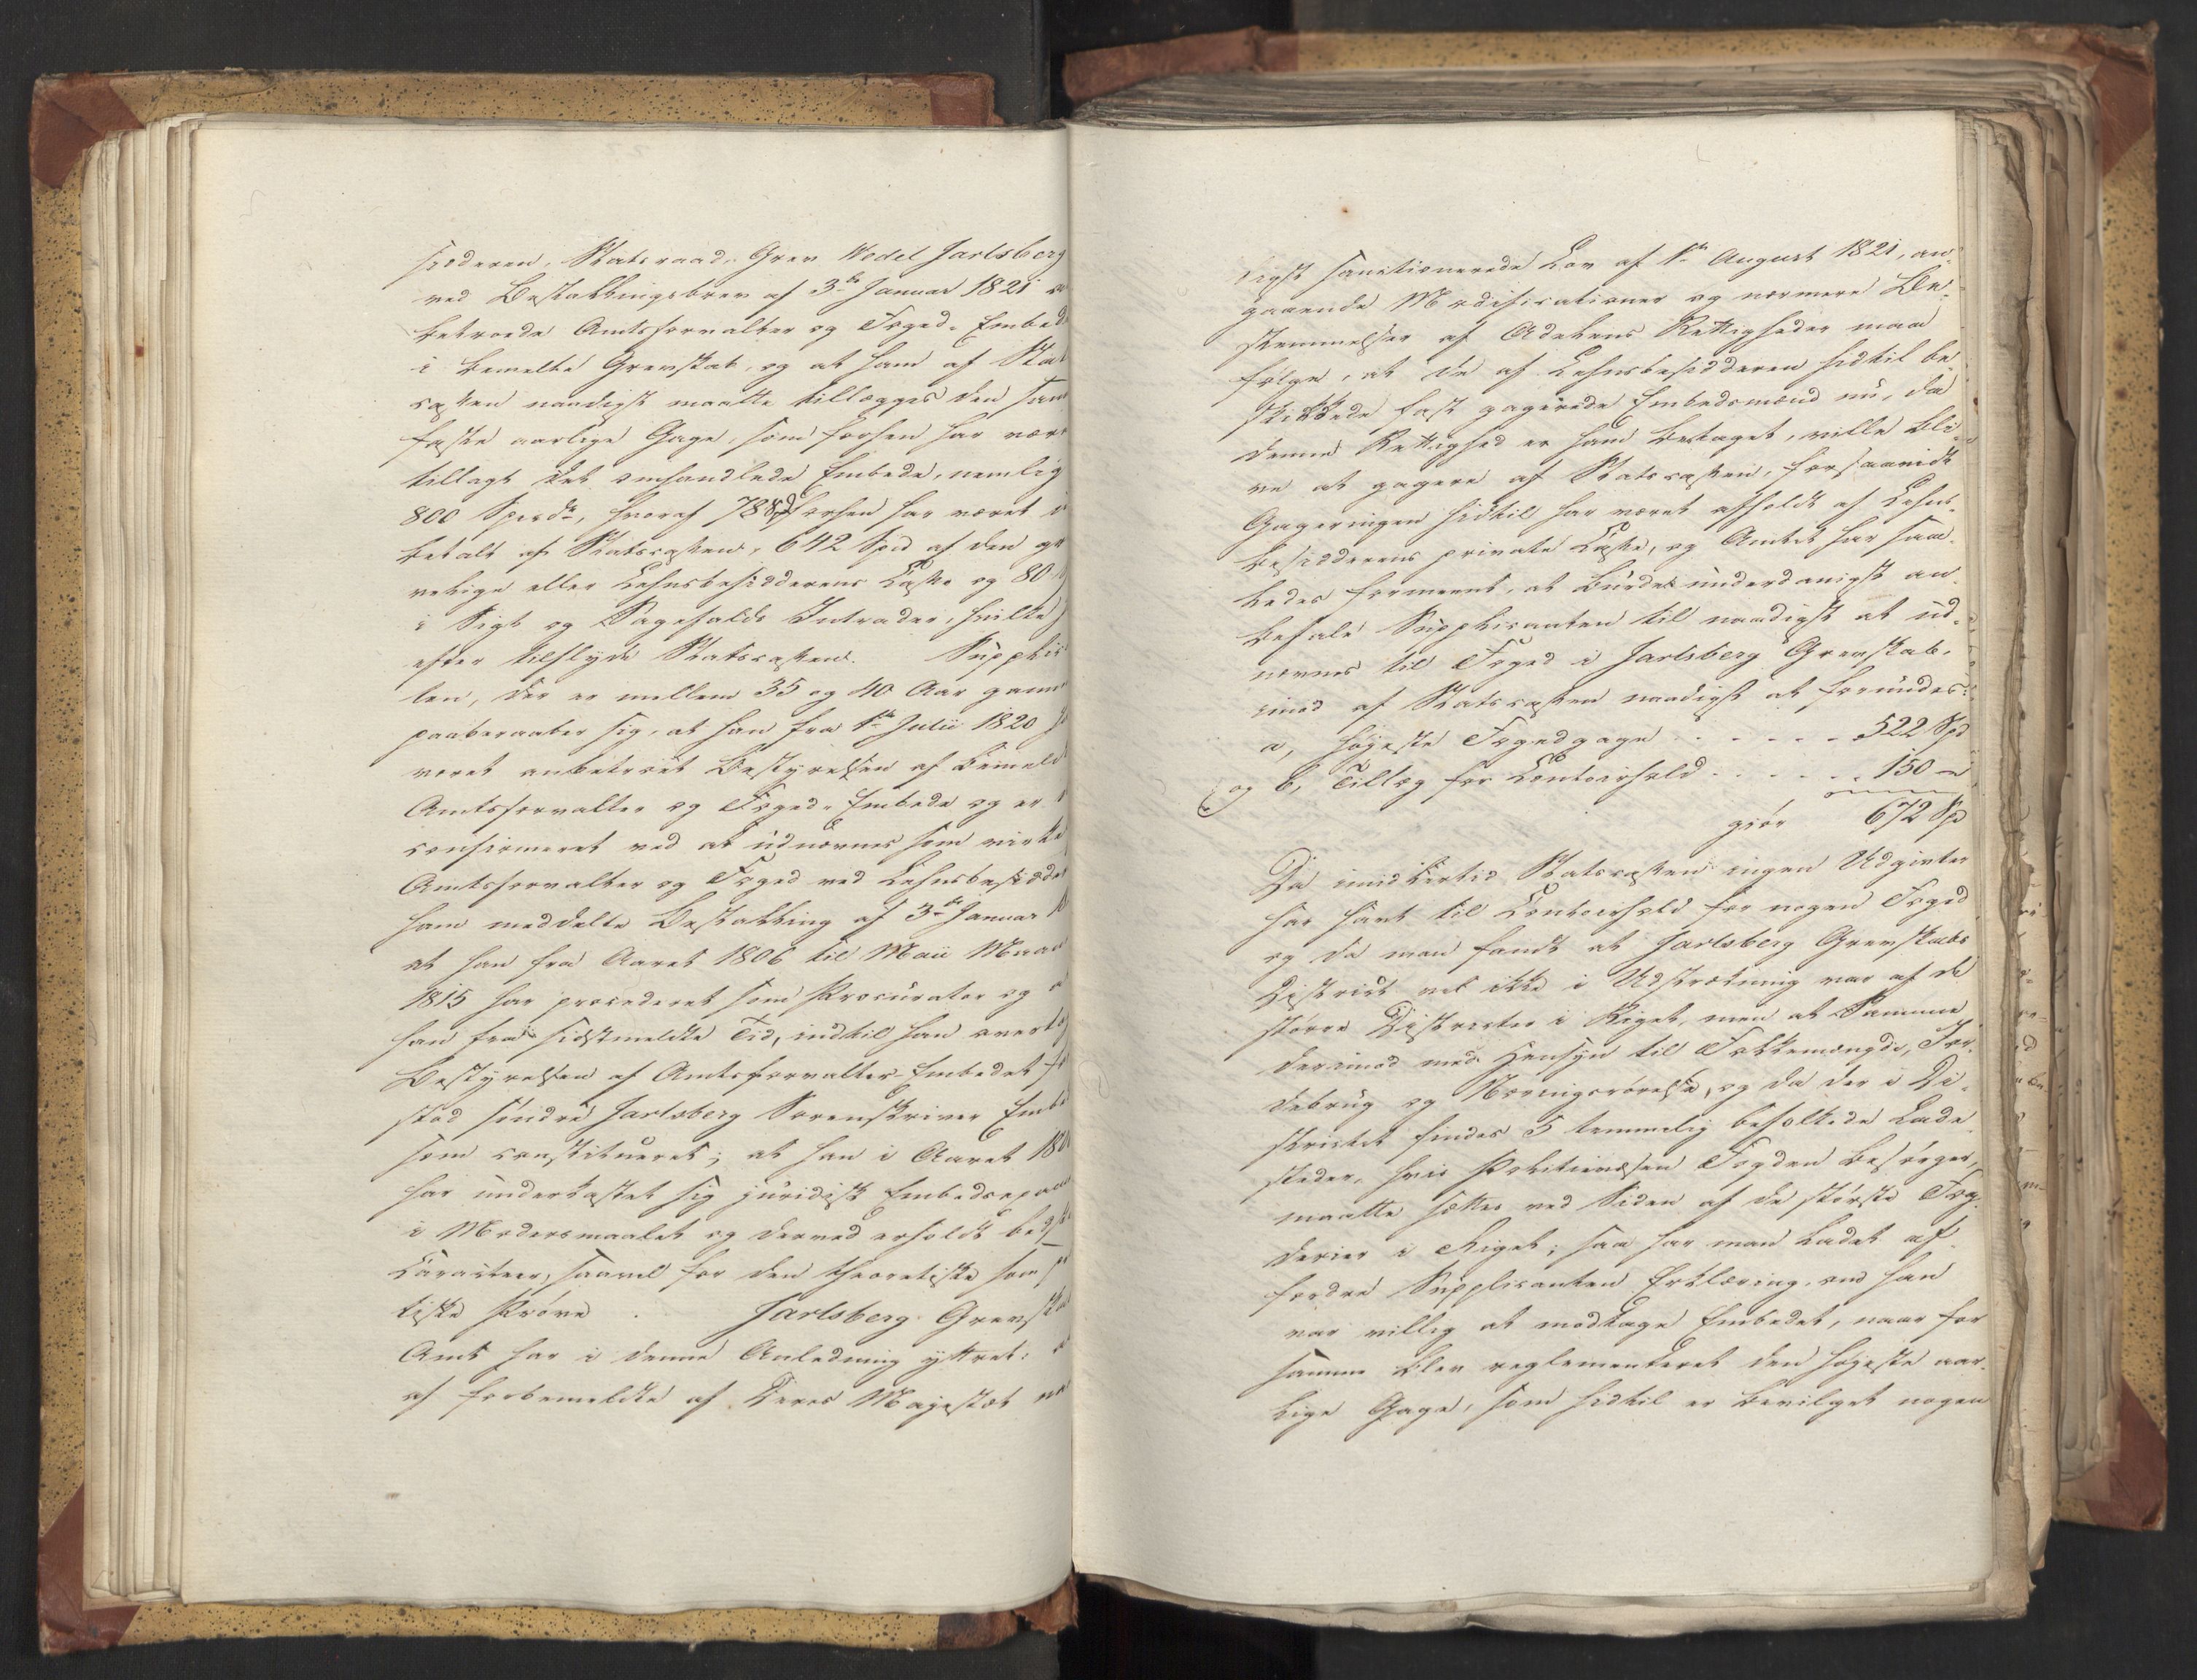 sidderen, Statsraad, Grev Wedel Jarlsberg
ved Bestallingsbrev af 3die Januar 1821
betroede Amtsforvalter og Foged-Embede
i bemeldte Grevskab, og at ham af Stats
cassen naadigst maatte tillægges den samme
faste aarlige Gage, som forhen har været
tillagt det omhandlede Embede, nemlig
800 Specdr, hvoraf 78 Spd forhen har været
betalt af Statscassen, 642 Spd af den gre
velige eller Lehnsbesidderens Casse og 80
i Sigt og Sagefalds Intrader, hvilke
efter tilflyde Statscassen. Supplican
ten, der er mellem 35 og 40 Aar gammel
paaberaaber sig, at han fra 1ste Julii 1820
været anbetroet Bestyrelsen af bemeldte
Amtsforvalter og Foged-Embede og er
confirmeret ved at udnævnes som virkelig
Amtsforvalter og Foged ved Lehnsbesidderens
ham meddelte Bestalling af 3die Januar
at han fra Aaret 1806 til Maii Maaned
1815 har procederet som Procurator og
han fra sidstmeldte Tid, indtil han overtog
Bestyrelsen af Amtsforvalter-Embedet fore
stod søndre Jarlsberg Sorenskriver Embede
som constitueret; at han i Aaret 18
har underkastet sig juridisk Embedsexamen
i Modersmaalet og derved erholdt bedste
Caracteer, saavel for den theoretiske som prac
tiske Prøve. Jarlsberg Grevskabs
Amt har i denne Anledning yttret:
af forbemeldte af Deres Majestæt naa
digst sanctionerede Lov af 1ste August 1821, an-
gaaende Modificationer og nærmere Be-
stemmelser af Adelens Rettigheder maa
følge, at de af Lehnsbesidderen hidtil be-
skikkede fast gagerede Embedsmænd nu, da
denne Rettighed er ham betaget, ville bli-
ve at gagere af Statscassen, forsaavidt
Gageringen hidtil har været afholdt af Lehns-
besidderens private Casse, og Amtet har saa-
ledes formeent, at burde underdanigst an-
befale Supplicanten til naadigst at ud-
nævnes til Foged i Jarlsberg Grevskab,
imod af Statscassen naadigst at forundes:
a, højeste Fogedgage - - - - - 522 Spd
og b, Tillæg for Contoirhold - - - - - 150 -
gjør 672 Spd
Da imidlertid Statscassen ingen Udgivter
har havt til Contoirhold for nogen Foged
og da man fandt at Jarlsberg Grevskabs
District vel ikke i Udstrækning var af de
større Districter i Riget, men at Samme
derimod med Hensyn til Folkemængde, Jor-
debrug og Næringsrørelse, og da der i Di-
strictet findes 5 temmelig befolkede Lade-
steder, hvis Politievæsen Fogden besørger,
maatte sættes ved Siden af de største Fog-
derier i Riget; saa har man ladet af-
fordre Supplicanten Erklæring, om han
var villig at modtage Embedet, naar for
samme blev reglementeret den højeste aar-
lige Gage, som hidtil er bevilget nogen